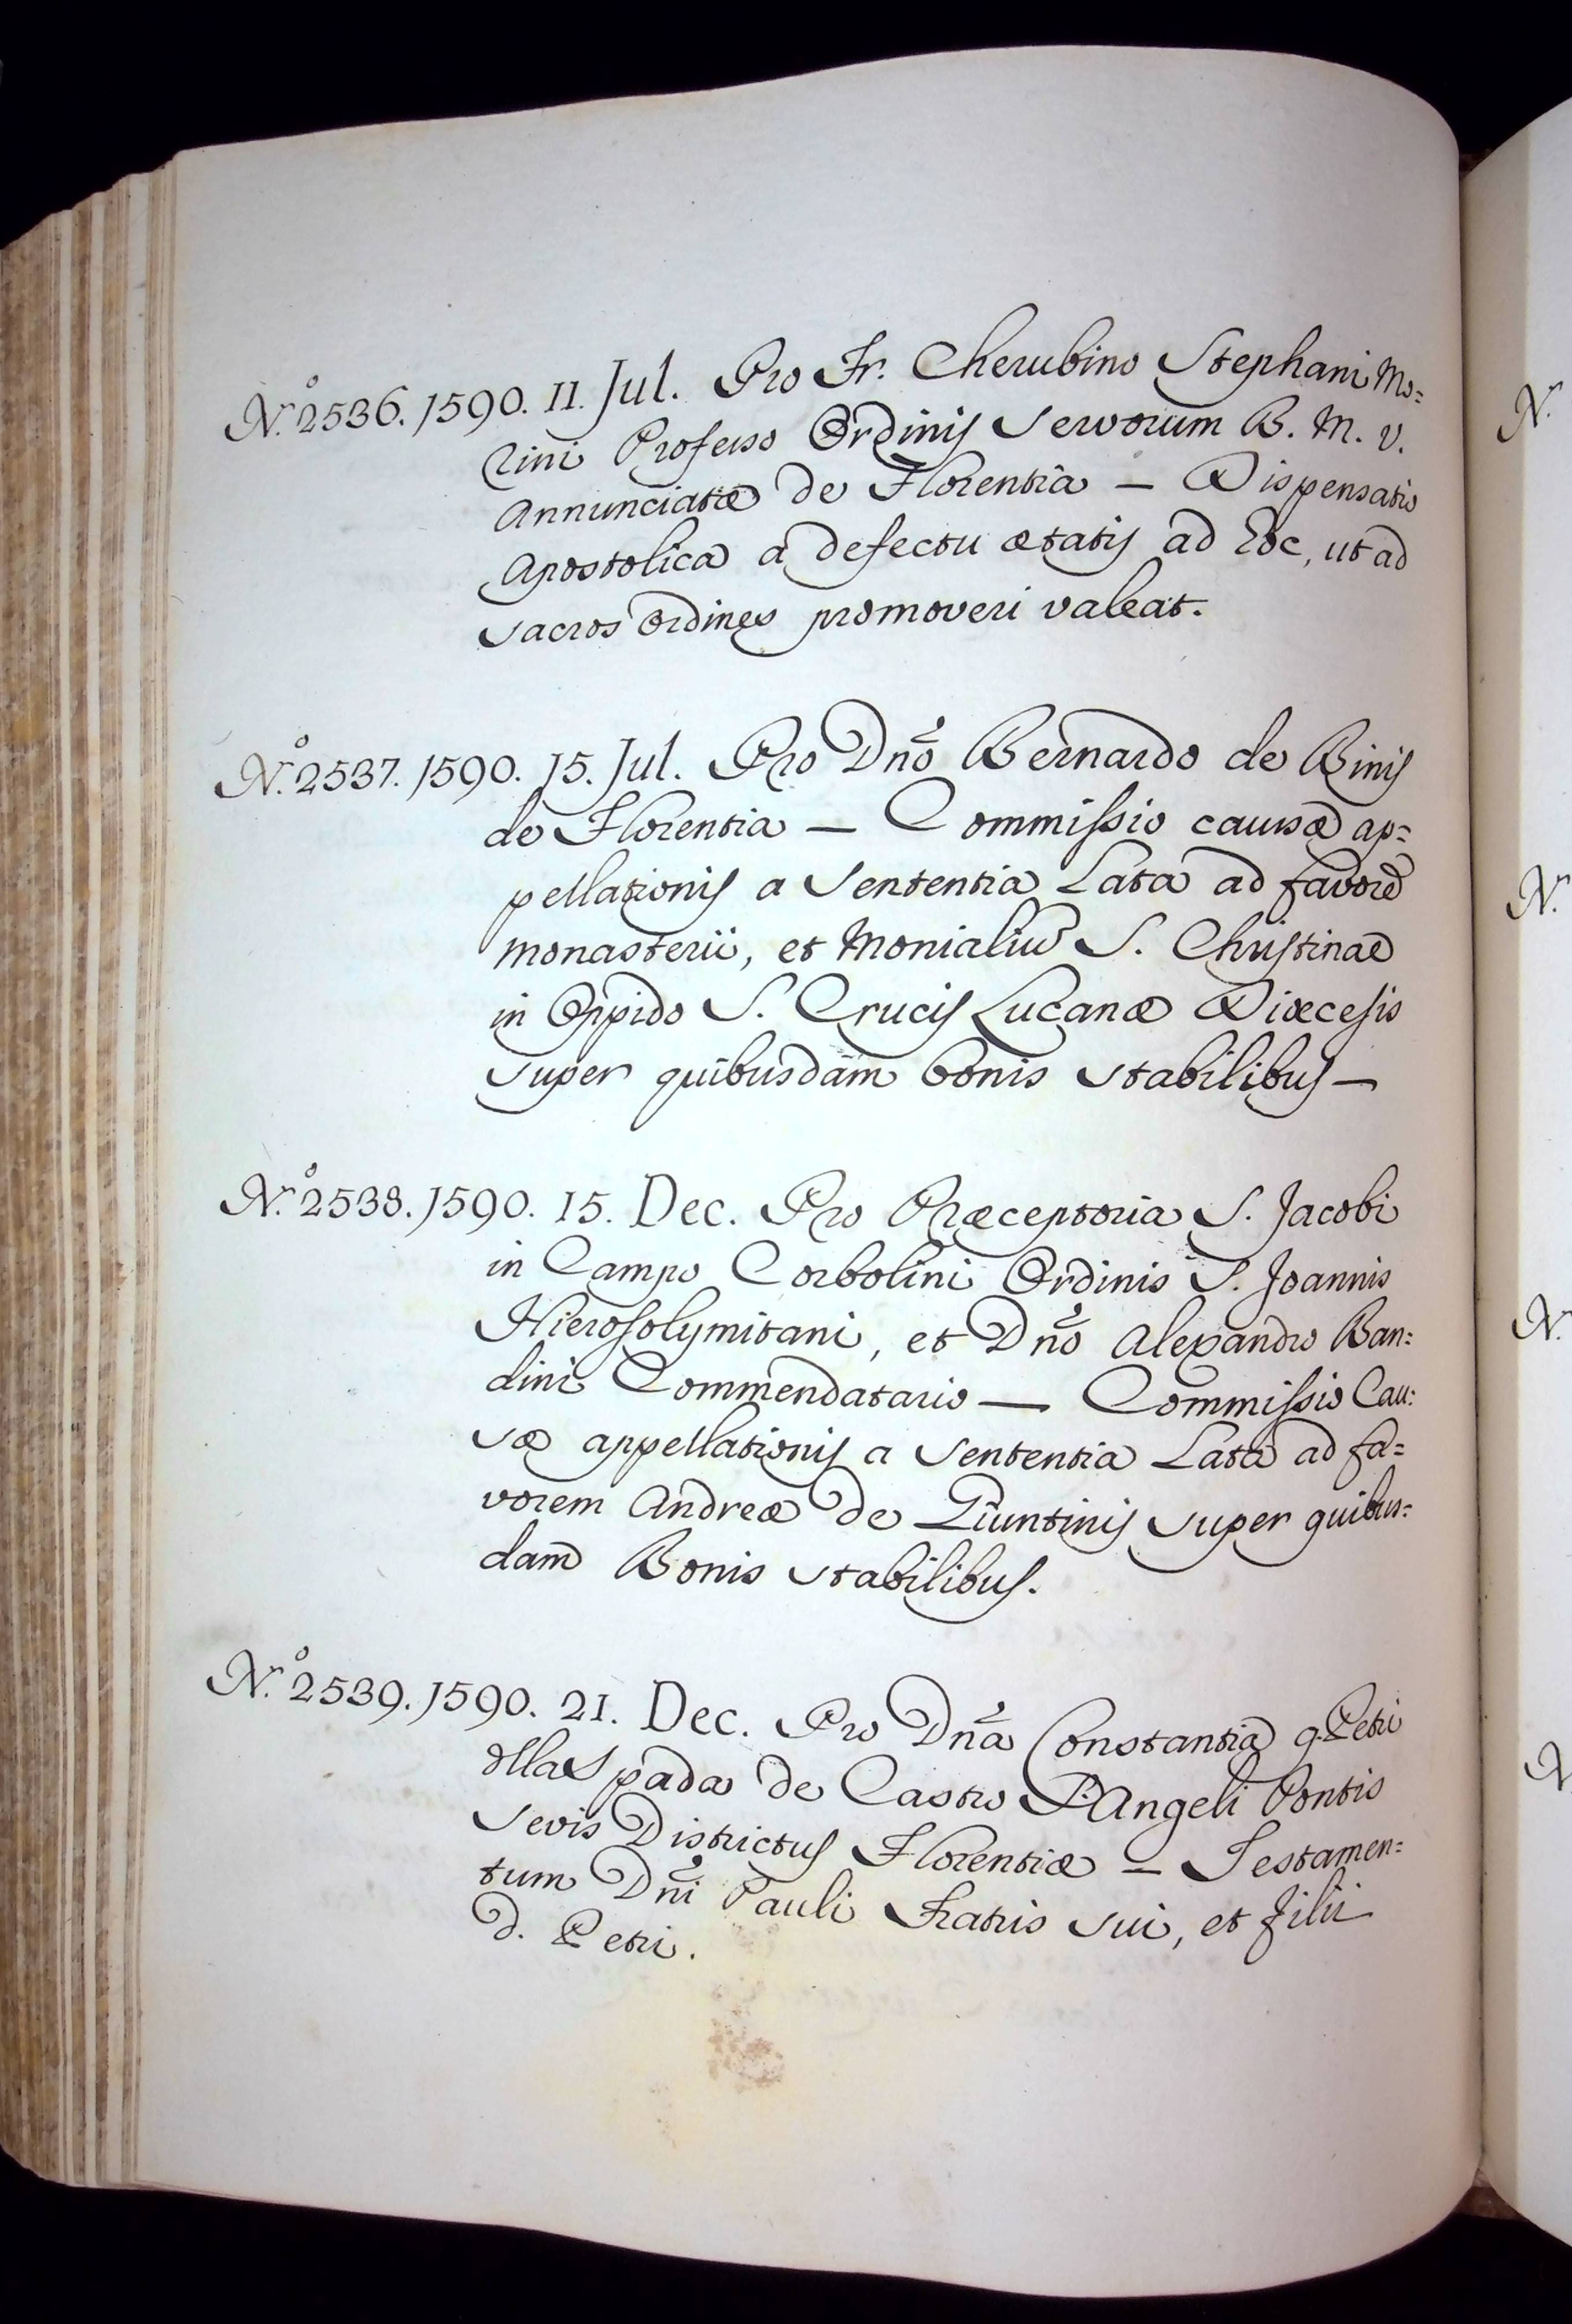 N.º 2536. 1590. 11. Jul. Pro Fr. Cherubino Stephani Mo=
rini Professo Ordinis Servorum B. M. V.
Annunciatæ de Florentia — Dispensatio
Apostolica a defectu ætatis ad hoc, ut ad
sacros Ordines promoveri valeat.
N.º 2537. 1590. 15. Jul. Pro Dño Bernardo de Binis
de Florentia — Commissio causæ ap=
pellationis a Sententia Lata ad favorē
Monasterii, et Monialiū S. Christinae
in Oppido S. Crucis Lucanæ Diœcesis
super quibusdam bonis stabilibus —
N.º 2538. 1590. 15. Dec. Pro Præceptoria S. Jacobi
in Campo Corbolini Ordinis S. Joannis
Hierosolymitani, et Dño Alexandro Ban=
dini Commendatario — Commissio Cau=
sæ appellationis a Sententia Lata ad fa=
vorem Andreæ de Giuntinis super quibus=
dam Bonis stabilibus.
N.º 2539. 1590. 21. Dec. Pro Dña Constantia q. Petri
della Spada de Castro S. Angeli Pontis
Sevis Districtus Florentiæ — Testamen=
tum Dñi Pauli Fratris sui, et filii
d. Petri.
N.
N.
N.
N